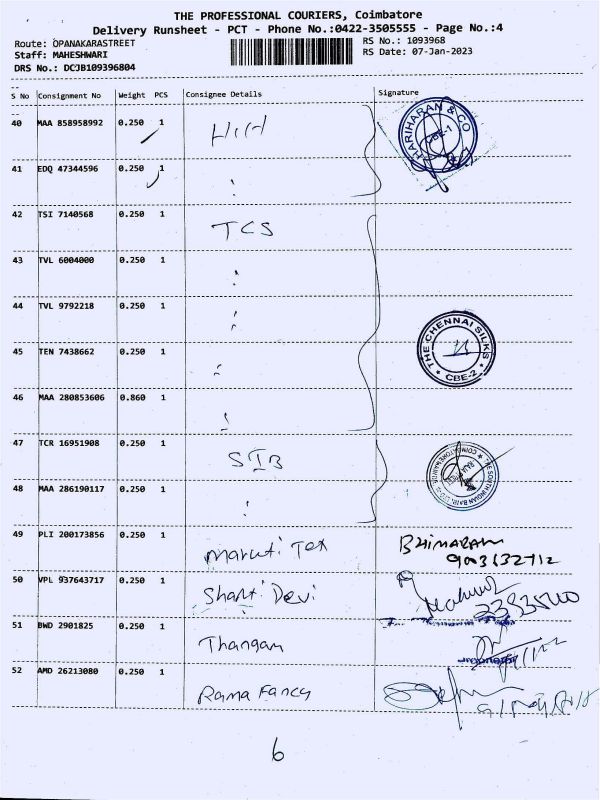 THE PROFESSIONAL COURIERS, Coimbatore
Delivery Runsheet - PCT - Phone No.:0422-3505555 - Page No.:4
Route: OPANAKARASTREET RS No.: 1093968
Staff: MAHESHWARI RS Date: 07-Jan-2023
DRS No.: DCJB109396804
S No Consignment No Weight PCS Consignee Details Signature
40 MAA 858958992 0.250 1
HARIHARAN & CO
CBE-1
41 EDQ 47344596 0.250 1
42 TSI 7140568 0.250 1 TCS
43 TVL 6004000 0.250 1
44 TVL 9792218 0.250 1
45 TEN 7438662 0.250 1
THE CHENNAI SILKS
CBE-2
46 MAA 280853606 0.860 1
47 TCR 16951908 0.250 1 SIB
THE SOUTH INDIAN BANK LTD
48 MAA 286190117 0.250 1
49 PLI 200173856 0.250 1 Maruti Tex BHIMARAM
9003632712
50 VPL 937643717 0.250 1 Shanti Devi
51 BWD 2901825 0.250 1 Thangam
52 AMD 26213080 0.250 1 Rama Fancy
6